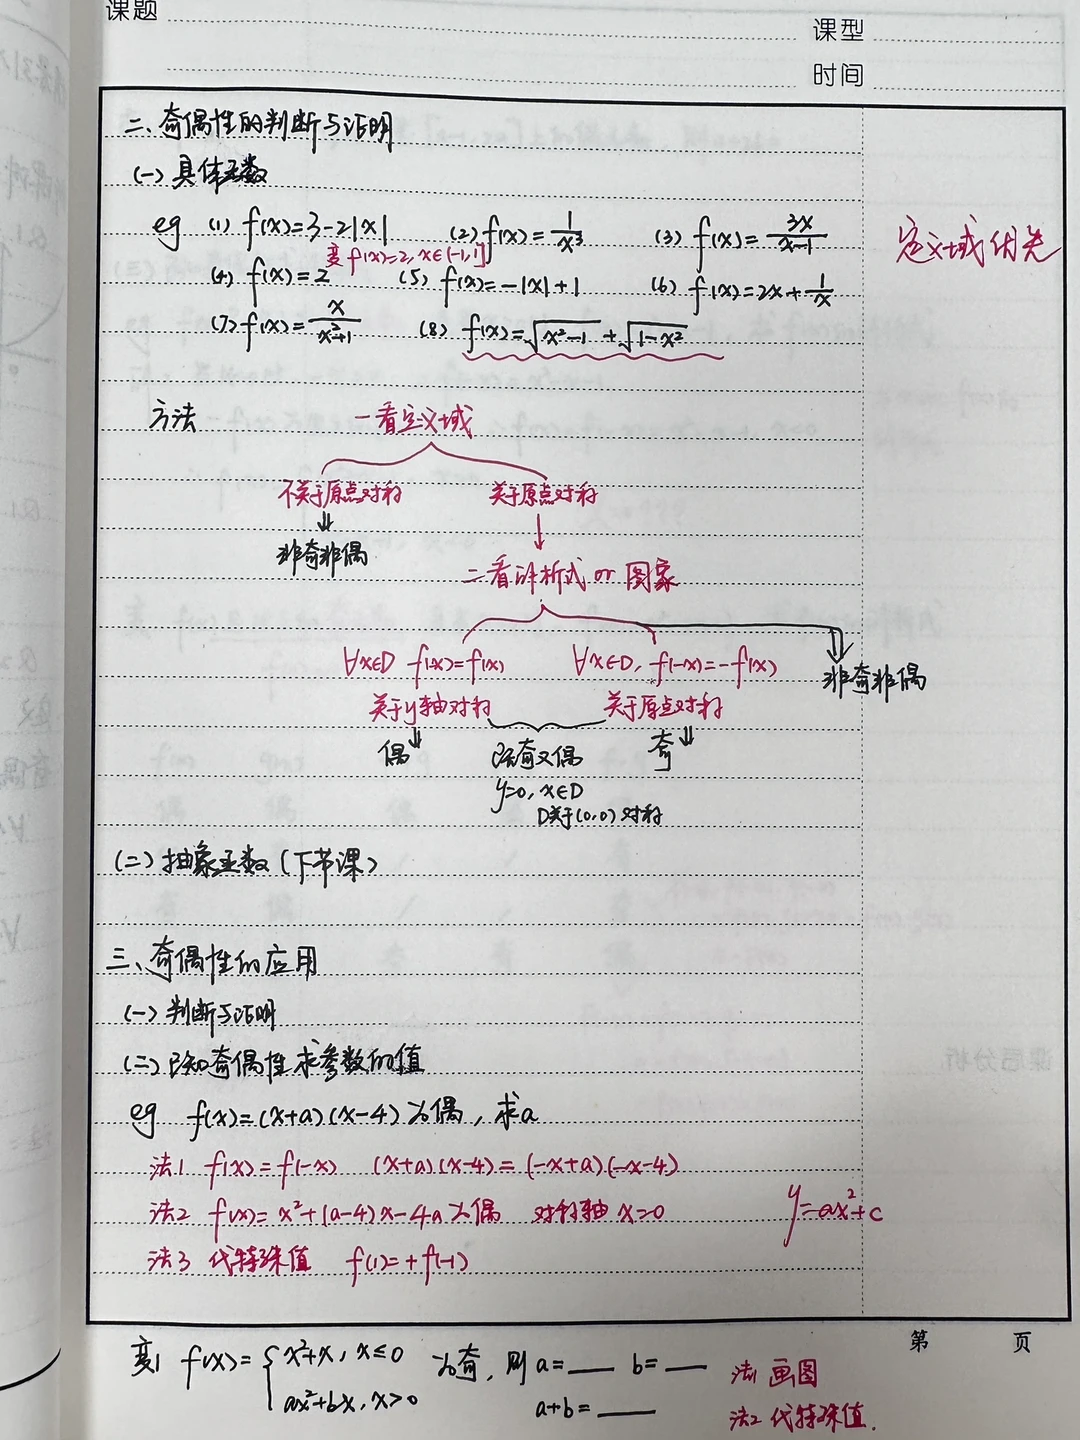 课题
课型
时间
二、奇偶性的判断与证明
(一) 具体函数
eg (1) f(x)=3-2|x| (2) f(x)=1/x³ (3) f(x)=3x/(x-1)
定义域优先
变 f(x)=2, x∈(-1,1]
(4) f(x)=2 (5) f(x)=-|x|+1 (6) f(x)=2x+1/x
(7) f(x)=x/(x²+1) (8) f(x)=√(x²-1)+√(1-x²)
方法 一看定义域
不关于原点对称 关于原点对称
⇓ ↓
非奇非偶
二看解析式 or 图象
∀x∈D f(-x)=f(x) ∀x∈D, f(-x)=-f(x) 非奇非偶
关于y轴对称 关于原点对称
偶 既奇又偶 奇
y=0, x∈D
D关于(0,0)对称
(二) 抽象函数 (下节课)
三、奇偶性的应用
(一) 判断与证明
(二) 已知奇偶性求参数的值
eg f(x)=(x+a)(x-4)为偶, 求a
法1 f(x)=f(-x) (x+a)(x-4)=(-x+a)(-x-4)
法2 f(x)=x²+(a-4)x-4a为偶 对称轴 x=0 y=ax²+c
法3 代特殊值 f(1)=+f(-1)
第 页
变1 f(x)={x²+x, x≤0 为奇, 则 a=___ b=___ 法1 画图
ax²+bx, x>0 a+b=___ 法2 代特殊值.